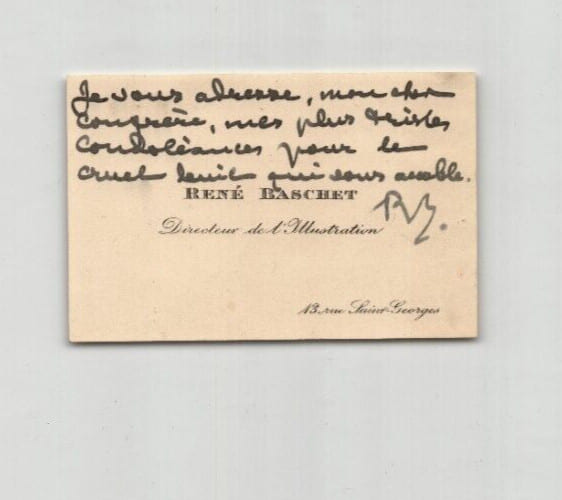 Je vous adresse, mon cher
confrère, mes plus tristes
condoléances pour le
cruel deuil qui vous accable.
RENÉ BASCHET
RB.
Directeur de l'Illustration
13, rue Saint-Georges